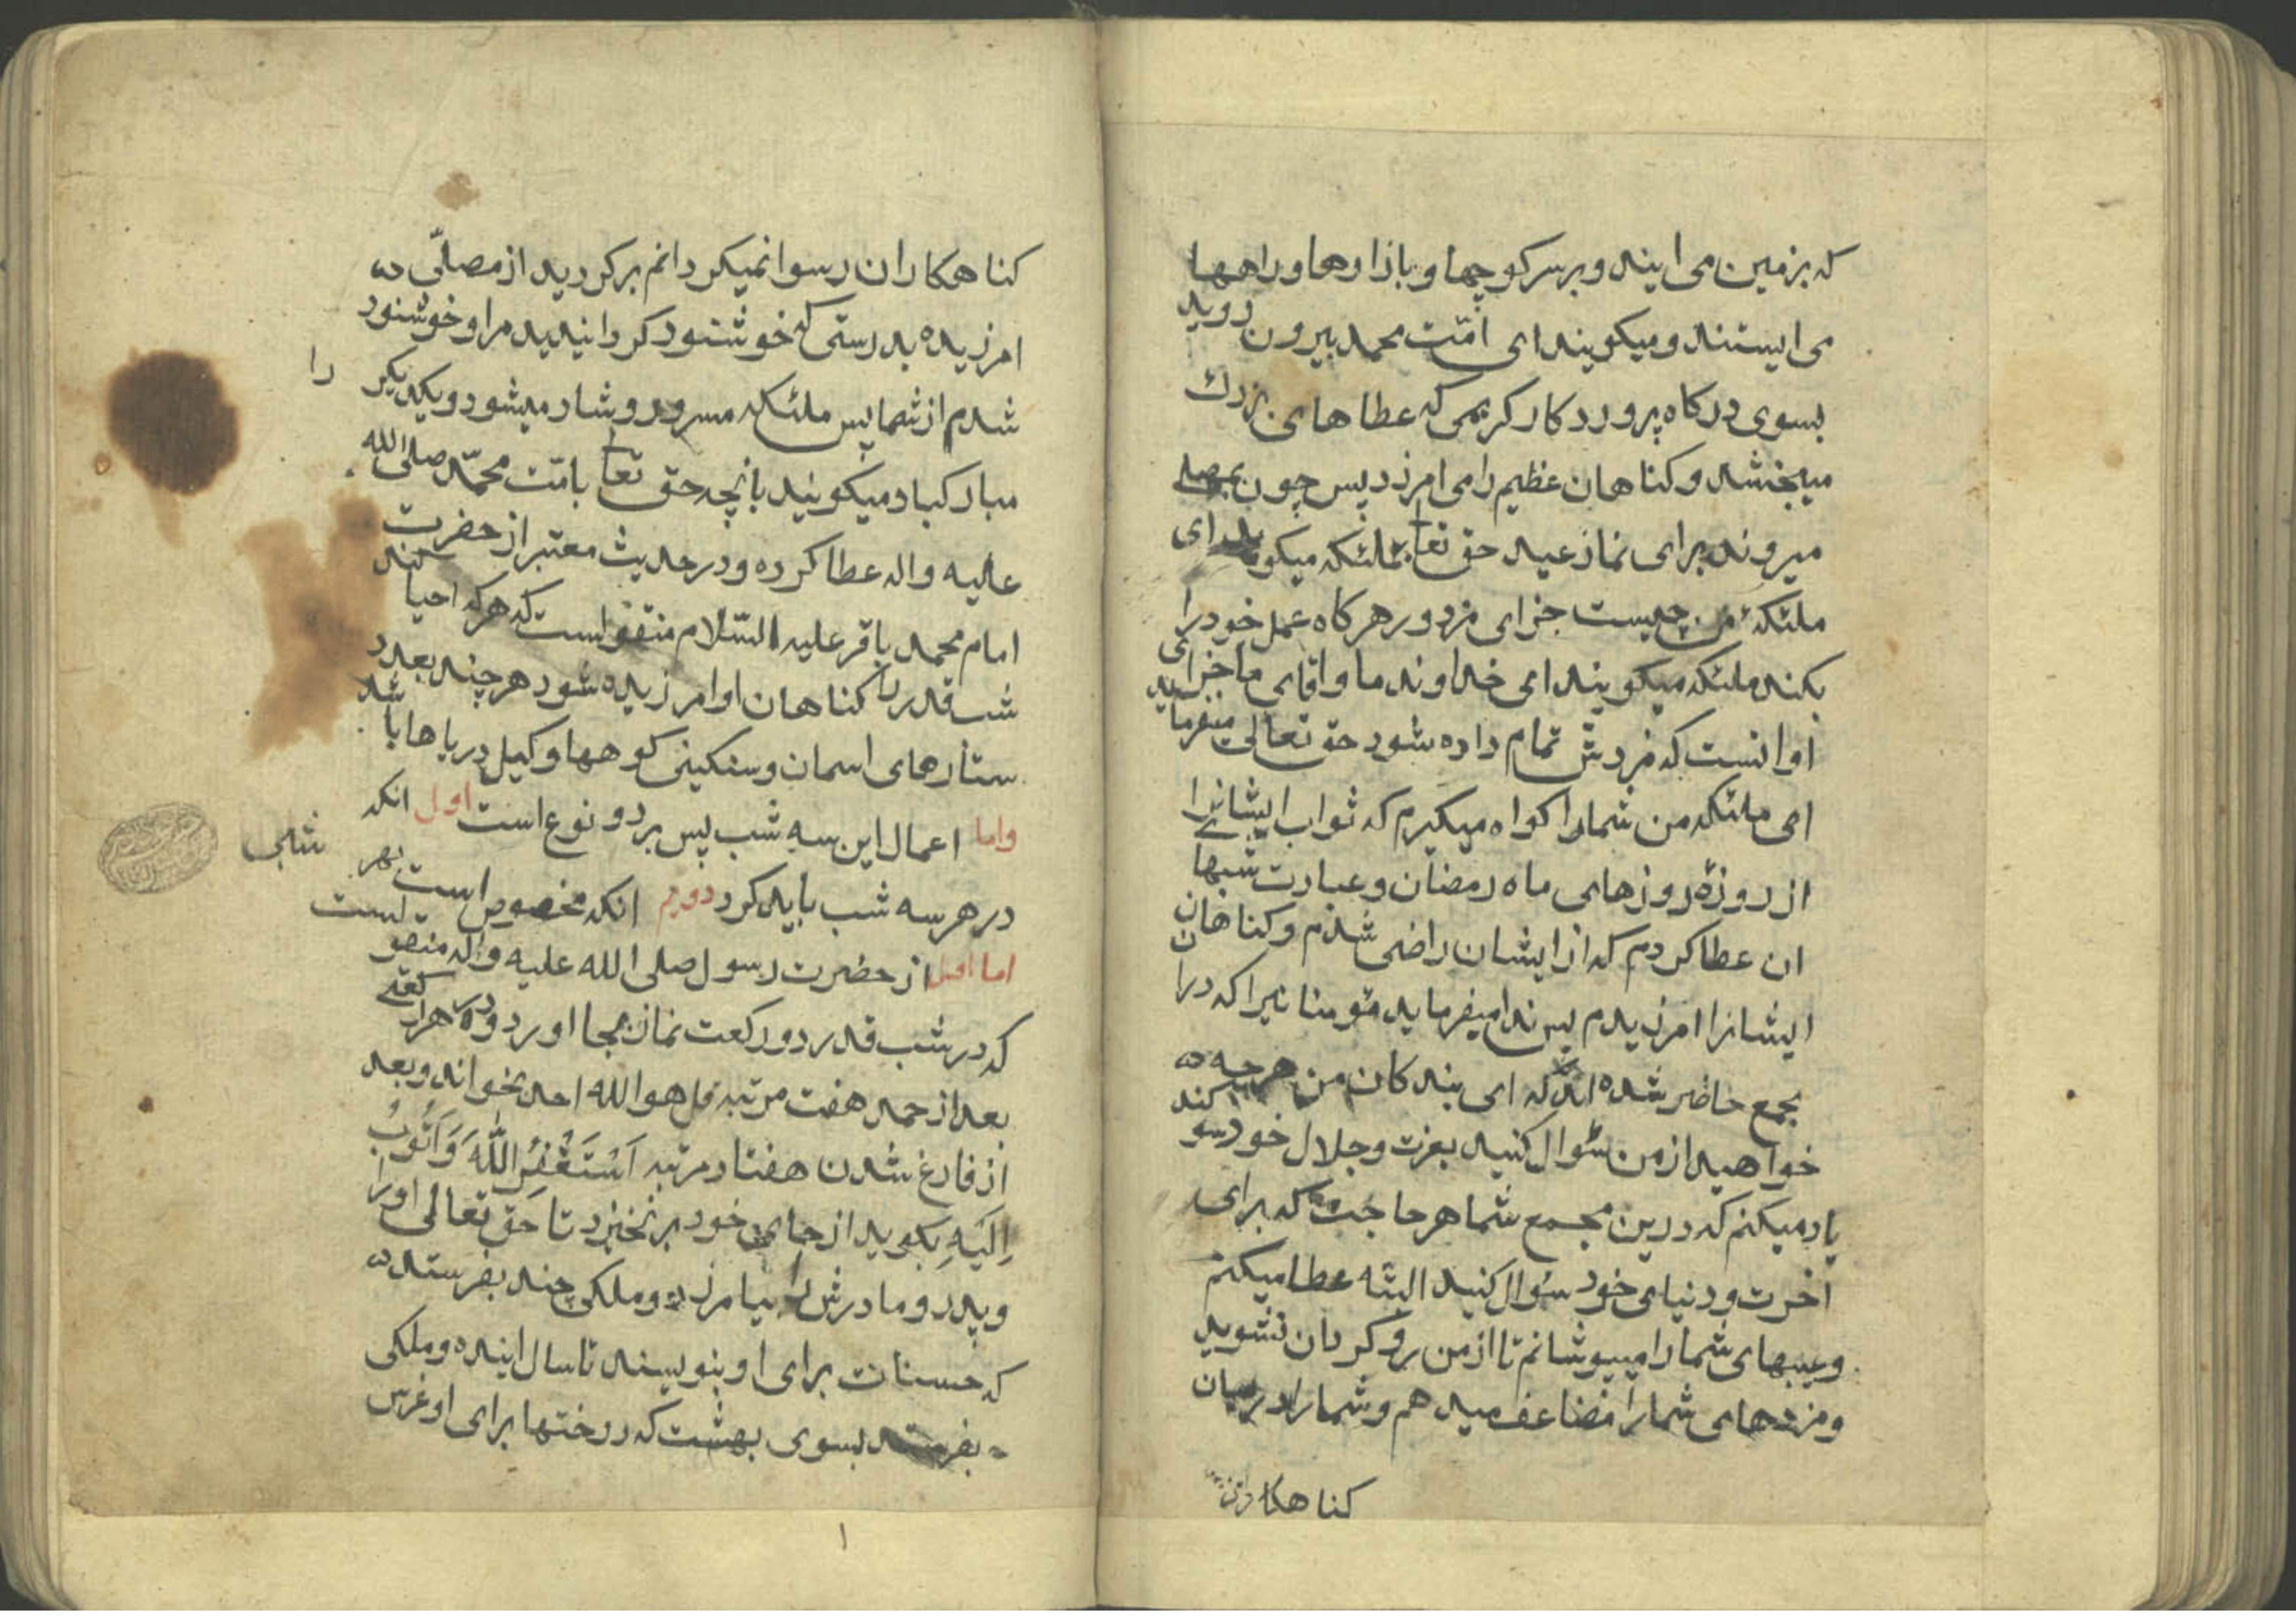 که بزمین می ایند و بر سر کوچها و بازارها و راهها
می ایستند و میکویند ای امّت محمد بیرون روید
بسوی درکاه پروردکار کریمی که عطاهای بزرك
میبخشد و کناهان عظیم را می امرزد پس چون بمصلی
میروند برای نماز عید حق تعا بملئکه میکوید ای
ملئکهٔ من چیست جزای مزدور هرکاه عمل خود را
بکند ملئکه میکویند ای خداوند ما و اقای ما جزای
او انست که مزدش تمام داده شود حق تعالی میفرماید
ای ملئکه من شما را کواه میکیرم که ثواب ایشانرا
از روزهٔ روزهای ماه رمضان و عبادت شبهای
ان عطا کردم که از ایشان راضی شدم و کناهان
ایشانرا امرزیدم پس ندا میفرماید مؤمنانیرا که دران
مجمع حاضر شده اند که ای بندکان من هرچه
خواهید از من سؤال کنید بعزت و جلال خود سوکند
یاد میکنم که درین مجمع شما هر حاجت که برای
اخرت و دنیای خود سؤال کنید البته عطا میکنم
و عیبهای شما را میپوشانم تا از من رو کردان نشوید
و مزدهای شما را مضاعف میدهم و شما را در میان
کناهکاران
کناهکاران رسوا نمیکردانم برکردید از مصلّی
امرزیده بدرستی که خوشنود کردانیدید مرا و خوشنود
شدم از شما پس ملئکه مسرور و شاد میشود و یکدیکر را
مبارکباد میکویند بانچه حق تعا بامّت محمّد صلی الله
علیه واله عطا کرده و در حدیث معتبر از حضرت
امام محمد باقر علیه السّلام منقولست که هر که احیا کند
شب قدر را کناهان او امرزیده شود هر چند بعدد
ستارهای اسمان و سنکینی کوهها و کیل دریاها باشد
واما اعمال این سه شب پس بر دو نوع است اول انکه
در هر سه شب باید کرد دویم انکه مخصوص است بهر شبی
اما اول از حضرت رسول صلی الله علیه واله منقولست
که در شب قدر دو رکعت نماز بجا اورد و در هر رکعتی
بعد از حمد هفت مرتبه قل هو الله احد بخواند و بعد
از فارغ شدن هفتاد مرتبه اَسْتَغْفِرُ اللّٰهَ وَاَتُوبُ
اِلَیْهِ بکوید از جای خود برنخیزد تا حق تعالی او را
و پدر و مادرش را بیامرزد و ملکی چند بفرستد
که حسنات برای او بنویسند تا سال اینده و ملکی
بفرستد بسوی بهشت که درختها برای او غرس
۱